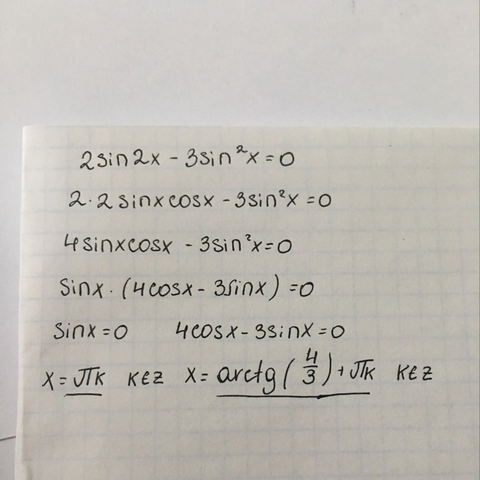 2sin2x - 3sin²x = 0
2·2sinxcosx - 3sin²x = 0
4sinxcosx - 3sin²x = 0
sinx·(4cosx - 3sinx) = 0
sinx = 0 4cosx - 3sinx = 0
x = πk k∈z x = arctg(4/3) + πk k∈z